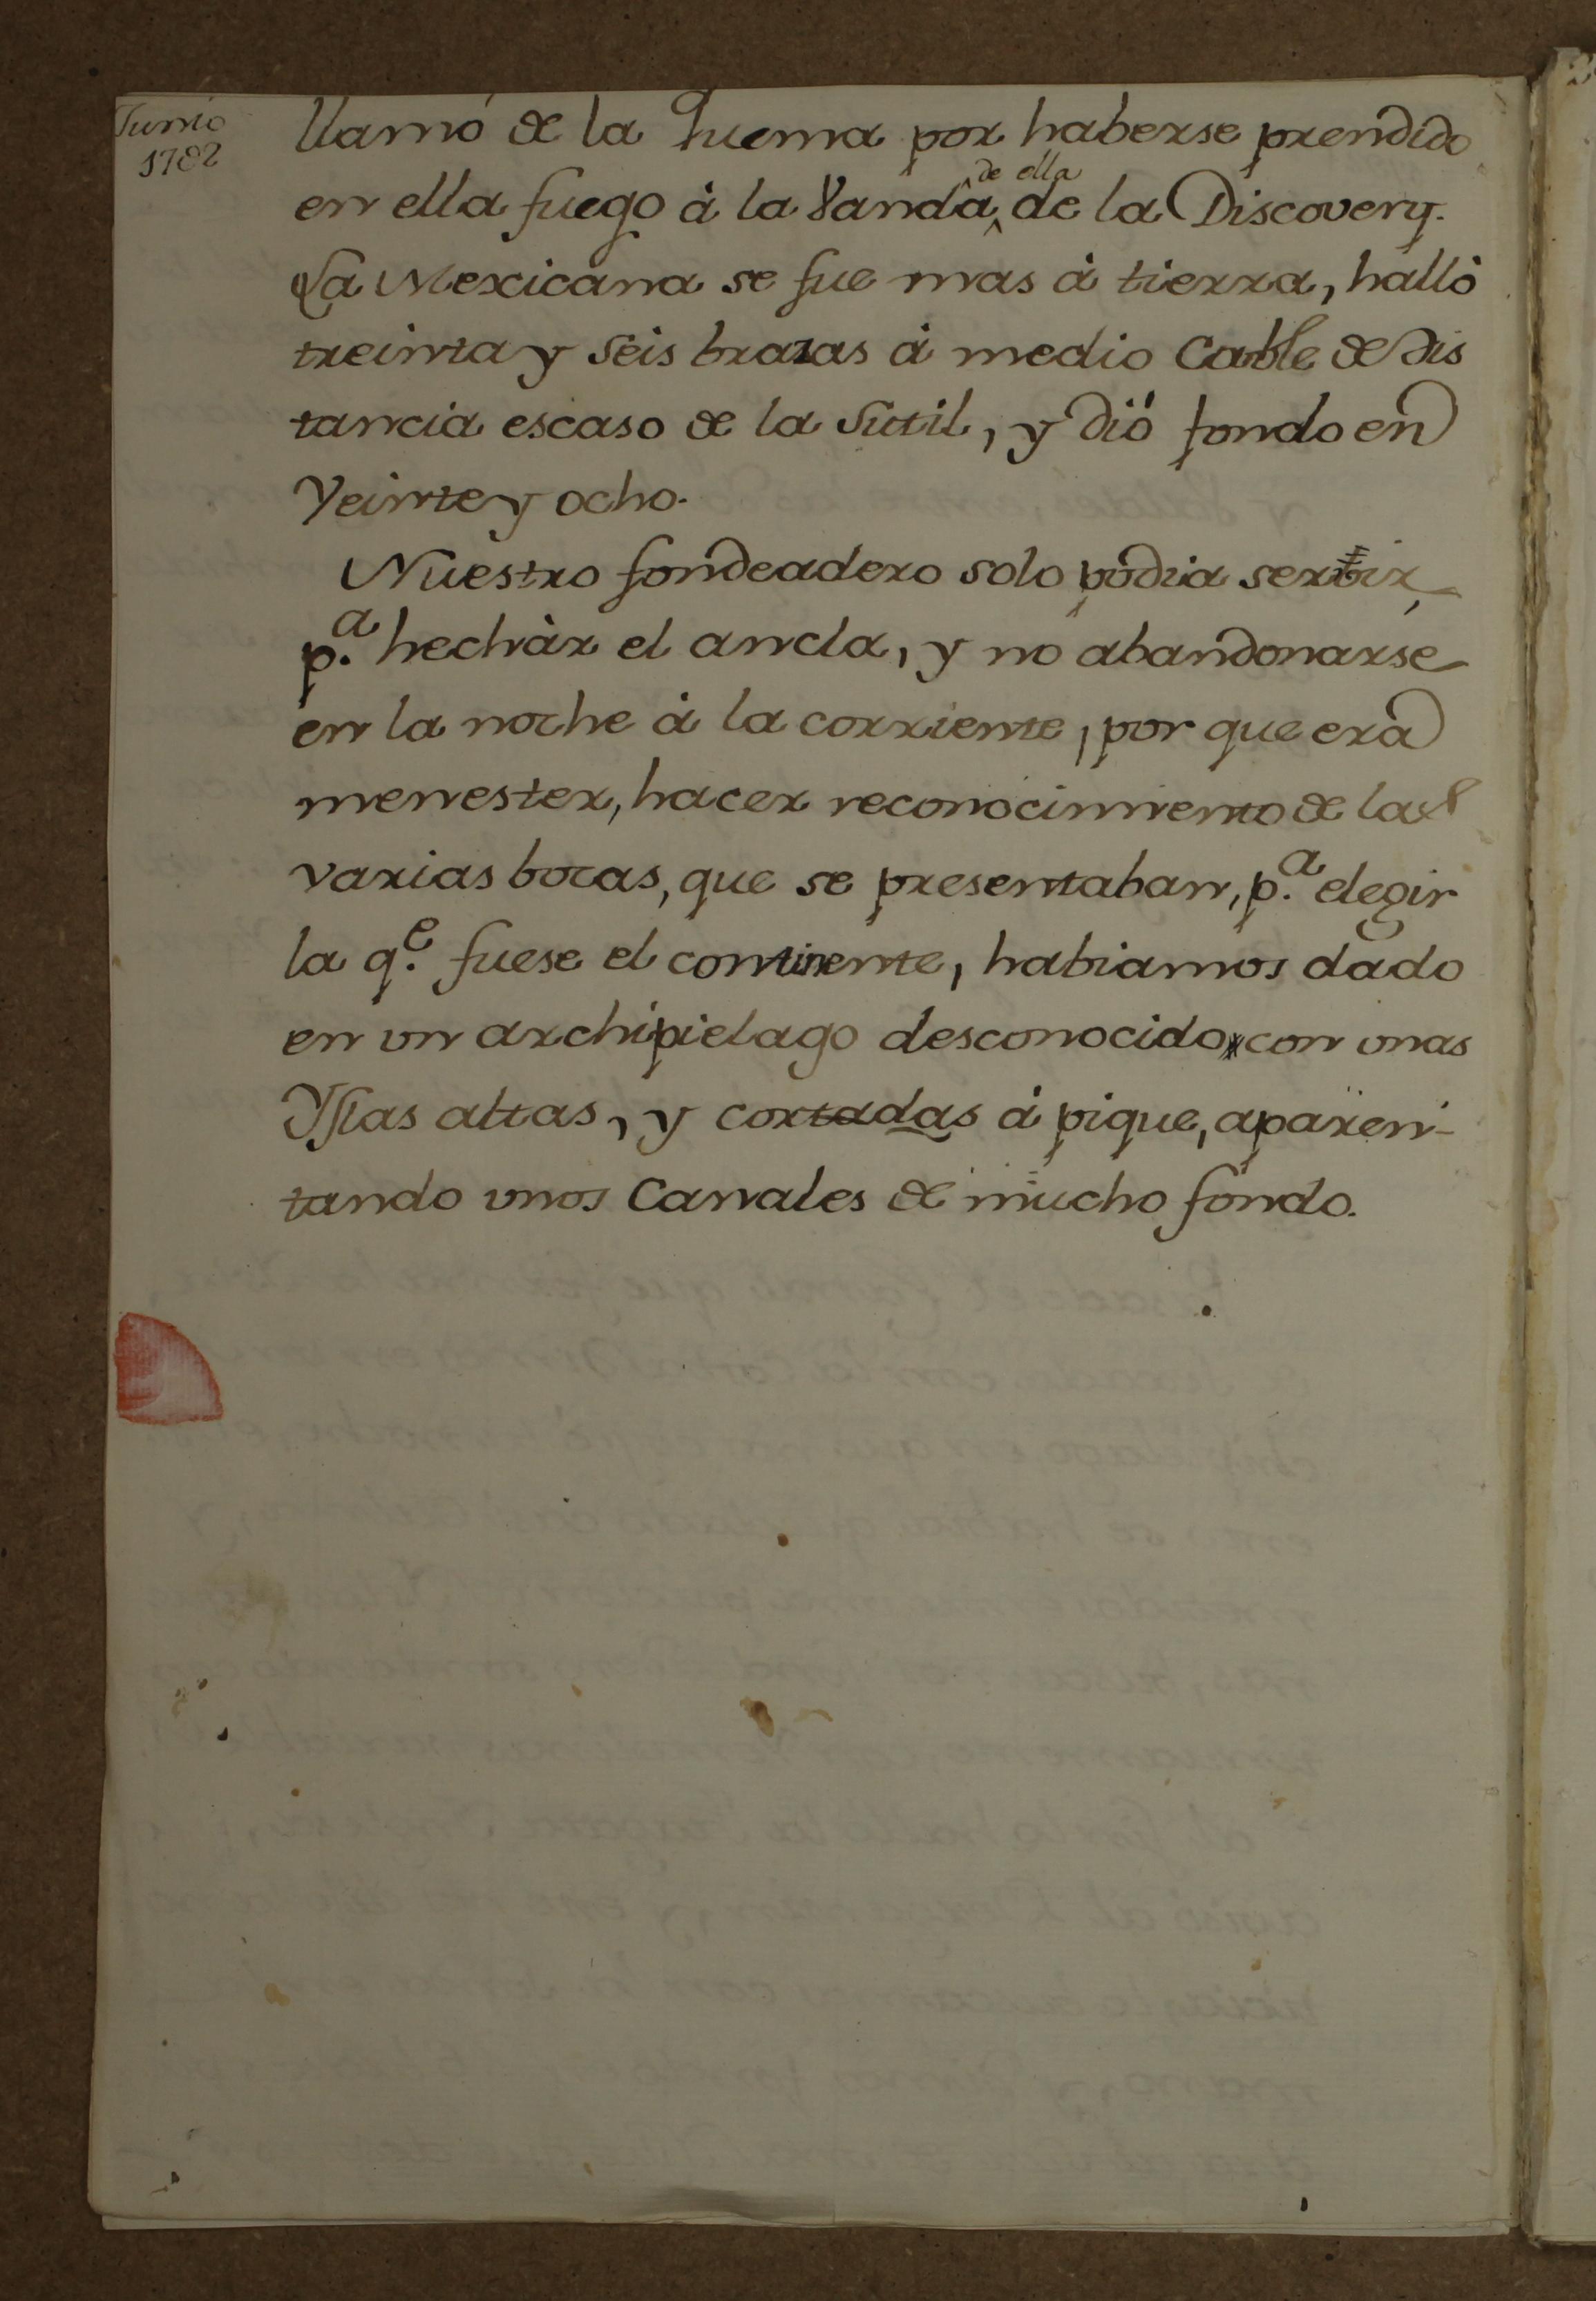 Junio
1792
llamó de la Quema por haberse prendido
en ella fuego á la Vanda de ella de la Discovery.
La Mexicana se fue mas á tierra, halló
treinta y seis brazas á medio Cable de dis
tancia escaso de la Sutil, y dió fondo en
Veinte y ocho.
Nuestro fondeadero solo podia servir
p.a hechàr el ancla, y no abandonarse
en la noche á la corriente, por que era
menester, hacer reconocimiento de las
varias bocas, que se presentaban, p.a elegir
la q.e fuese el continente, habiamos dado
en un archipielago desconocido con unas
Yslas altas, y cortadas á pique, aparen-
tando unos Canales de mucho fondo.